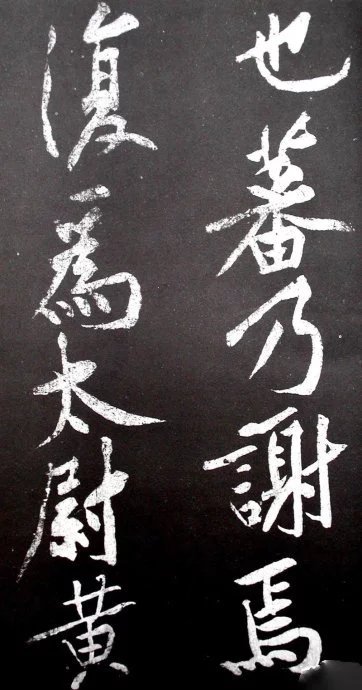 也蕃乃謝焉
復爲太尉黃